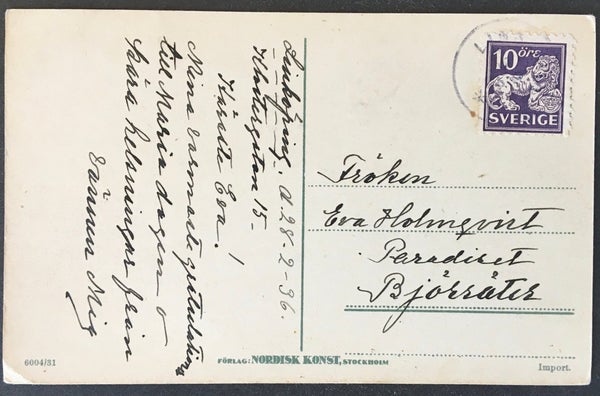 Linköping. d 28-2-36.
Klostergatan 15-
Käraste Eva!
Mina varmaste gratulationer
till Maria dagen o
kära helsningar från
10 öre
SVERIGE
Fröken
Eva Holmqvist
Paradiset
Björsäter
6004/31
FÖRLAG: NORDISK KONST, STOCKHOLM
Import.